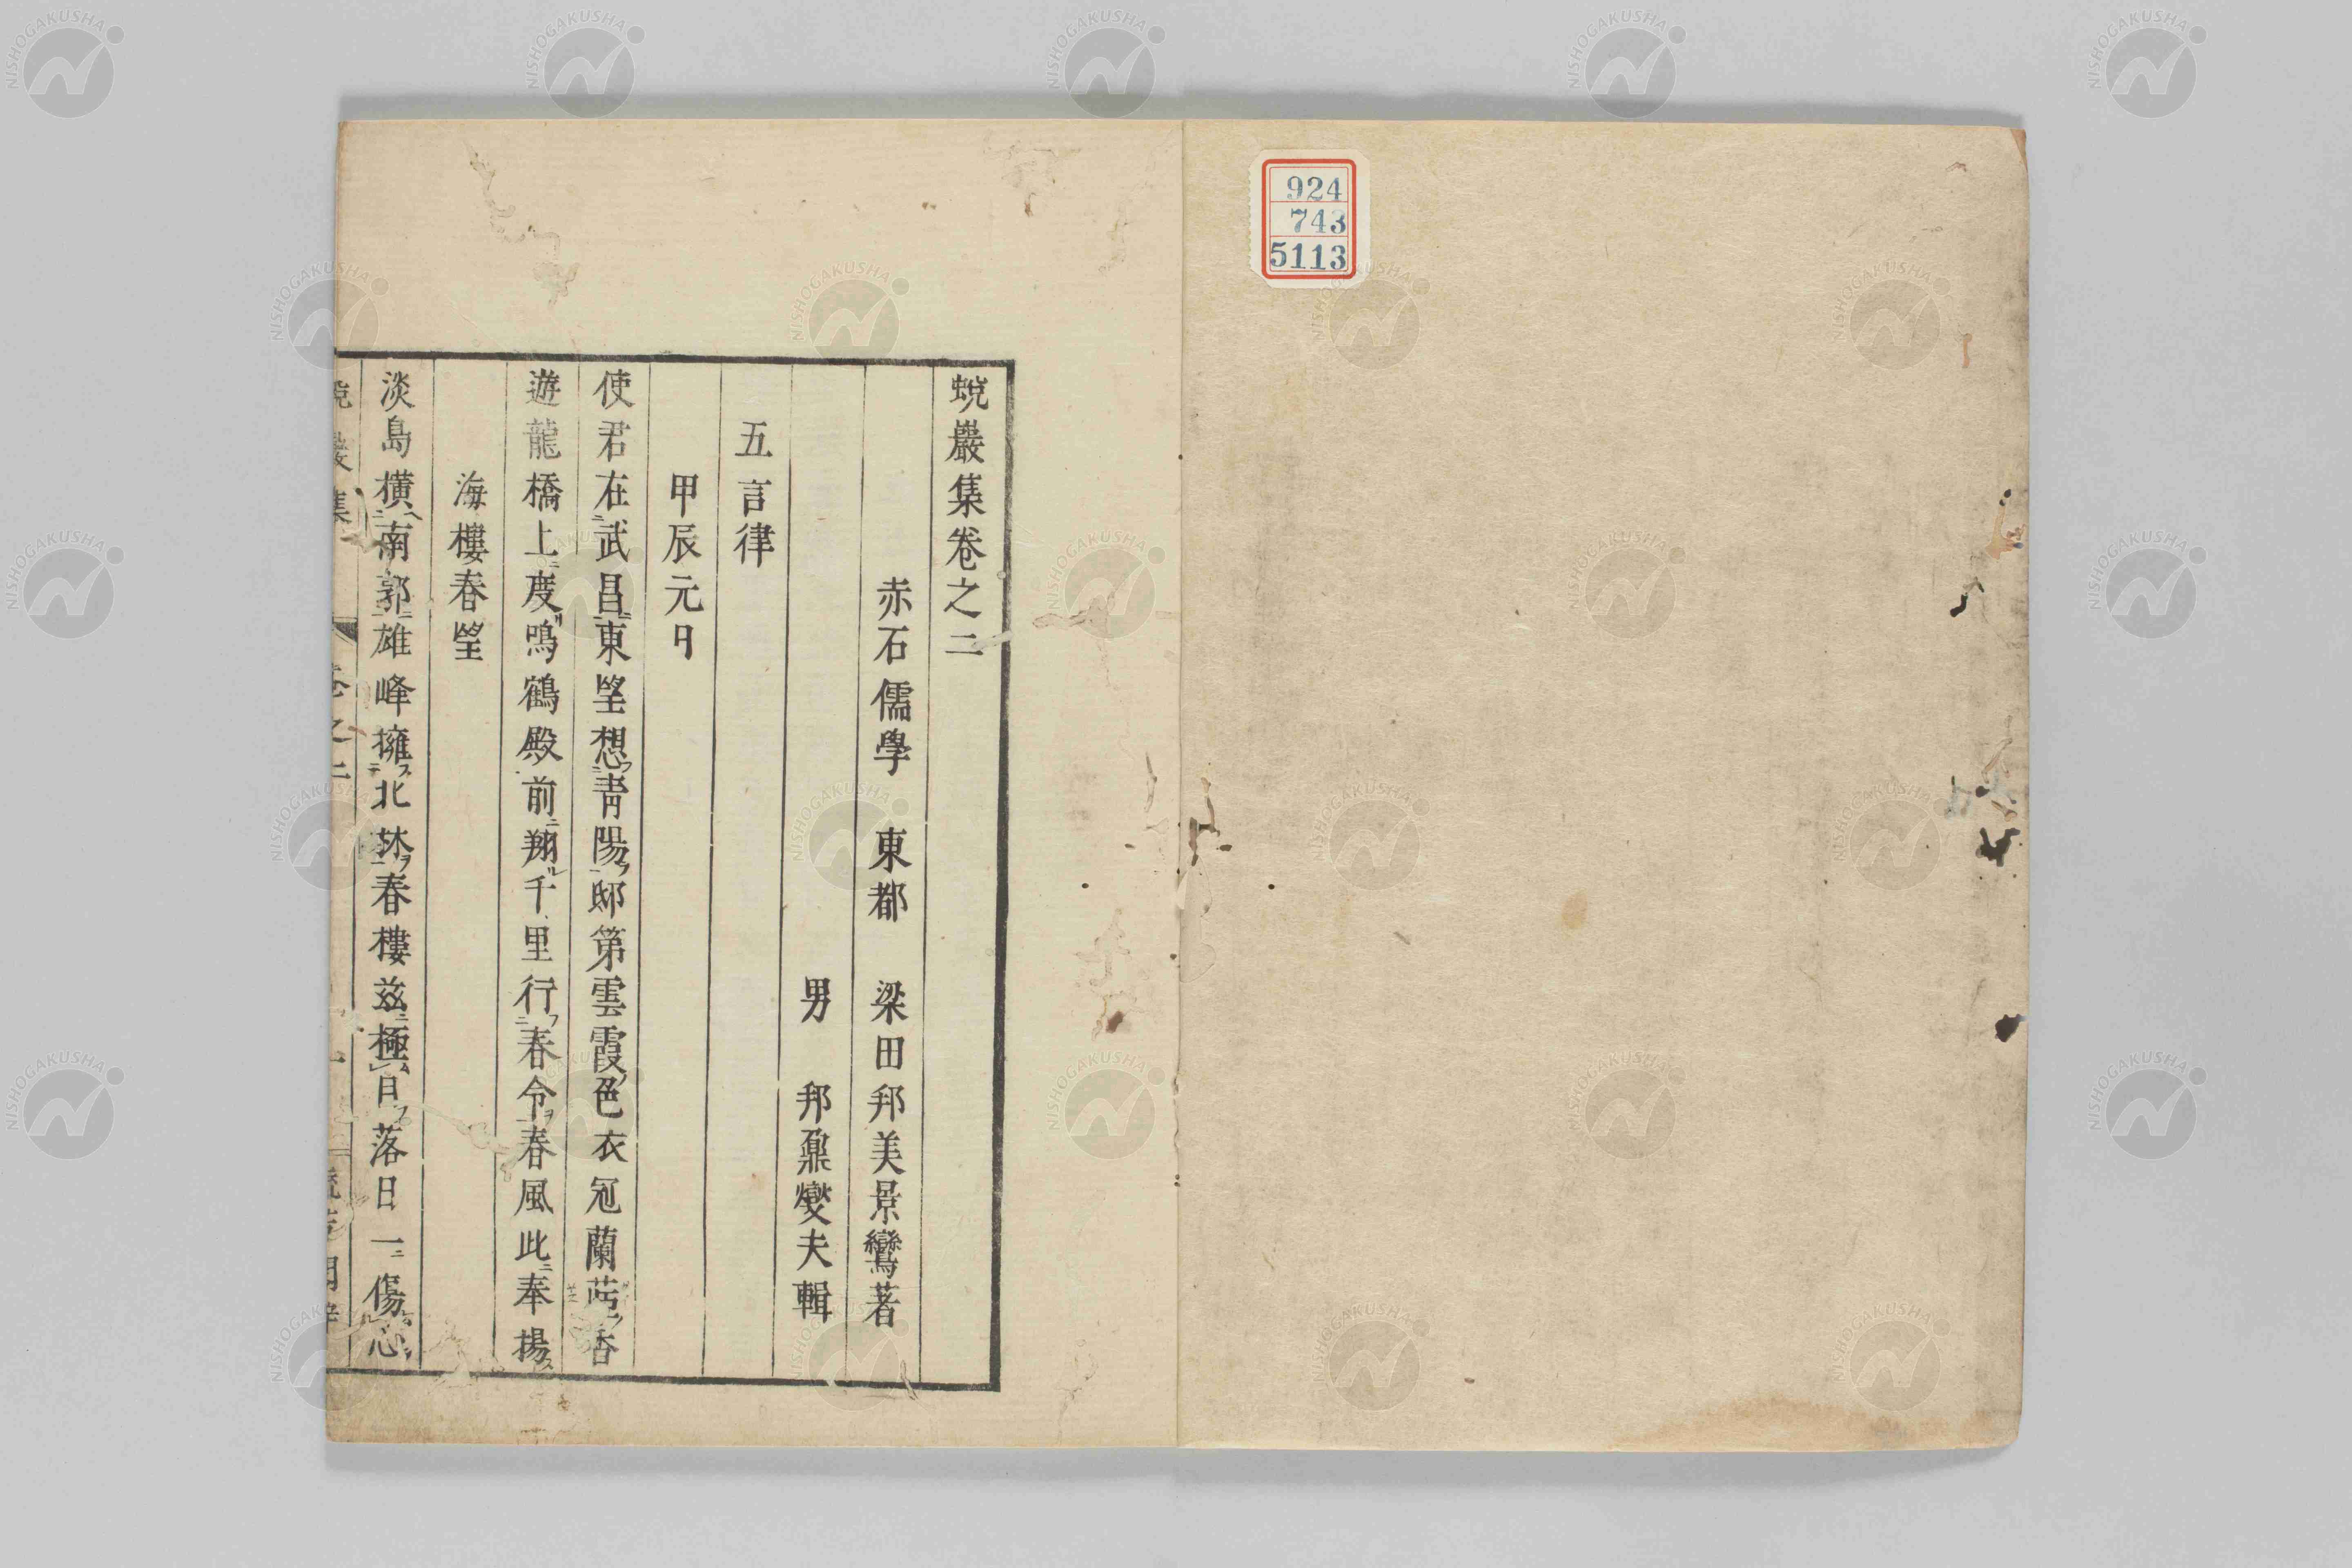 924
743
5113
蛻巖集卷之二
赤石儒學 東都 梁田邦美景鸞著
男 邦鼐燮夫輯
五言律
甲辰元日
使君在武昌東望想青陽邸第雲霞色衣冠蘭茝香
遊龍橋上度鳴鶴殿前翔千里行春令春風此奉揚
海樓春望
淡島橫南郭雄峰擁北林春樓兹極目落日一傷心